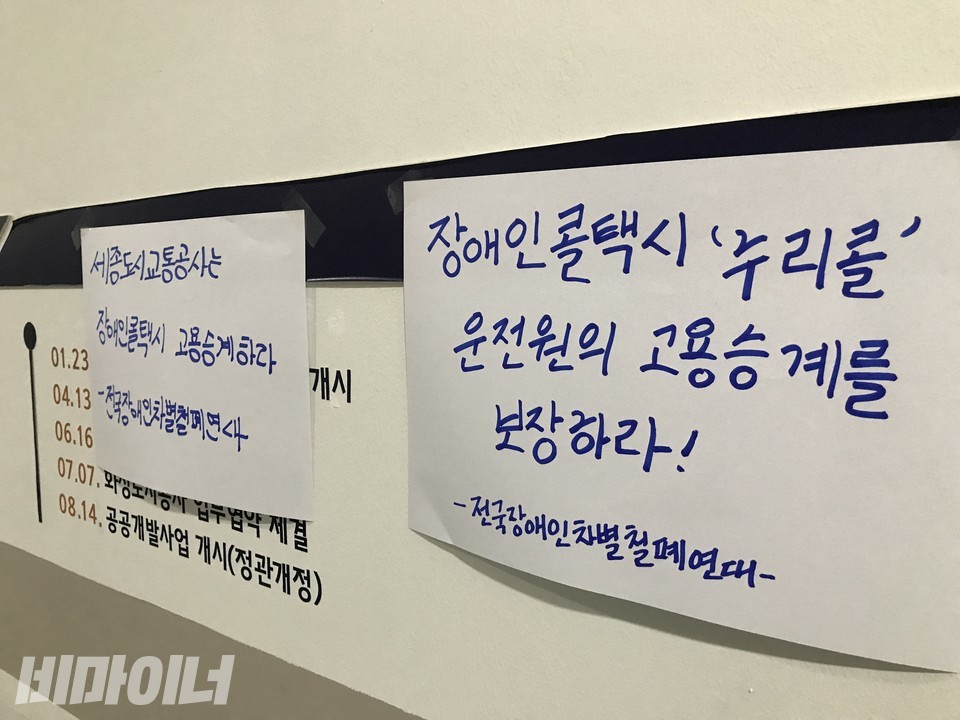 세종도시교통공사는
장애인콜택시 고용승계하라
-전국장애인차별철폐연대
장애인콜택시 '누리콜'
운전원의 고용승계를
보장하라!
-전국장애인차별철폐연대-
01.23 개시
04.13
06.16
07.07. 화성도시공사 업무협약 체결
08.14. 공공개발사업 개시(정관개정)
비마이너